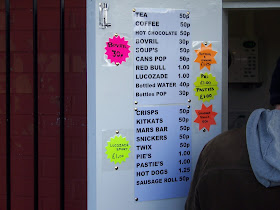 TEA 50p
COFFEE 50p
HOT CHOCOLATE 50p
BOVRIL 30p
SOUP'S 50p
CANS POP 50p
RED BULL 1.00
LUCOZADE 1.00
Bottled WATER 40p
Bottles POP 30p
CRISPS 50p
KITKATS 50p
MARS BAR 50p
SNICKERS 50p
TWIX 50p
PIE'S 1.00
PASTIE'S 1.00
HOT DOGS 1.25
SAUSAGE ROLL 50p
BOVRIL
30p
LUCOZADE
£1.00
PASTIES
£1.00